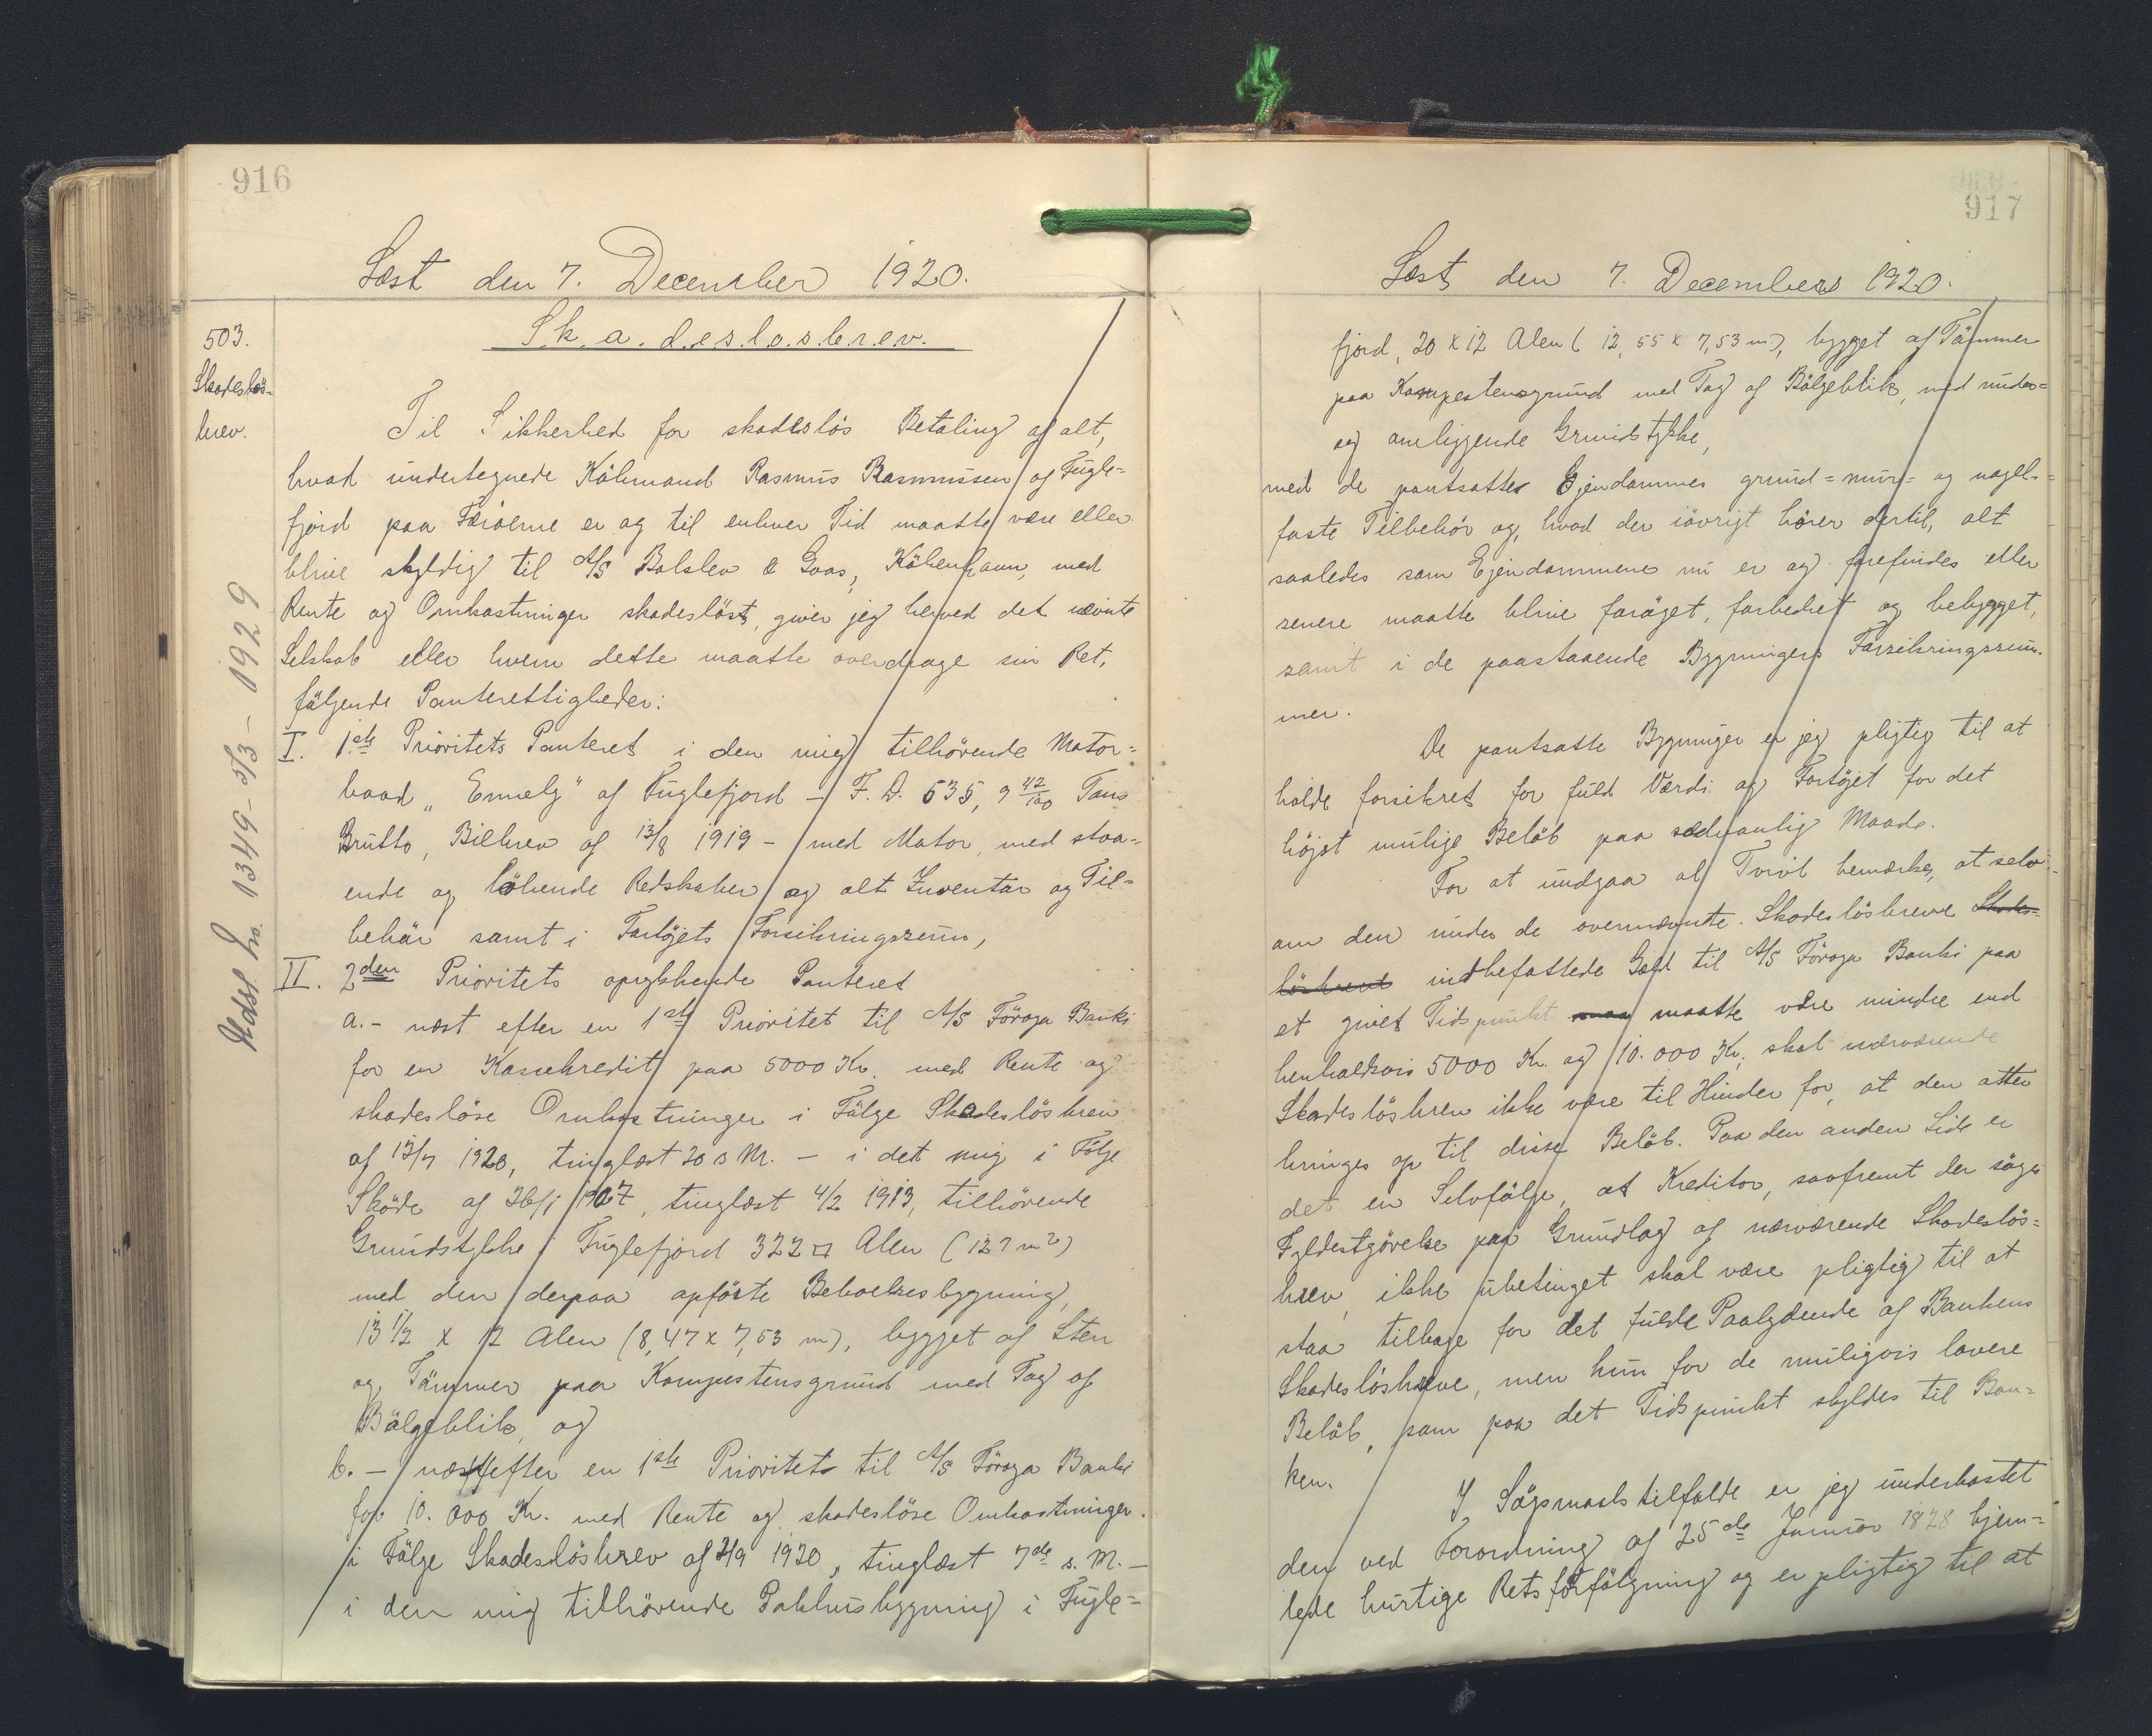 916
Læst den 7. December 1920.
503.
Skadeslös-
brev.
Udsl. Lro. 1349 - 5/3 - 1929
S.k.a.d.e.s.l.o.s.b.r.e.v.
Til Sikkerhed for skadeslös Betaling af alt,
hvad undertegnede Köbmand Rasmus Rasmussen af Fugle=
fjord paa Færöerne er og til enhver Tid maatte være eller
blive skyldig til A/S Balslev & Goos, Köbenhavn, med
Rente og Omkostninger skadeslöst, giver jeg herved det nævnte
Selskab eller hvem dette maatte overdrage sin Ret,
fölgende Panterettigheder:
I. 1.ste Prioritets Panteret i den mig tilhörende Motor=
baad „Emmely" af Fuglefjord - F. D. 535, 9 42/100 Tons
Brutto, Bilbrev af 13/8 1919 - med Motor, med staa=
ende og löbende Redskaber og alt Inventar og Til=
behör samt i Fartöjets Forsikringssum,
II. 2den Prioritets oprykkende Panteret
a. - næst efter en 1ste Prioritet til A/S Föroya Banki
for en Kassekredit paa 5000 Kr. med Rente og
skadeslöse Omkostninger i Fölge Skadeslösbrev
af 13/7 1920, tinglæst 20 s. M. - i det mig i Fölge
Sköde af 26/1 1907, tinglæst 4/2 1913, tilhörende
Grundstykke i Fuglefjord 322 □ Alen (127 m²)
med den derpaa opförte Beboelsesbygning,
13 1/2 x 12 Alen (8,47 x 7,53 m), bygget af Sten
og Tömmer paa Kampestensgrund med Tag af
Bölgeblik, og
b. - næst efter en 1ste Prioritet til A/S Föroya Banki
for 10.000 Kr. med Rente og skadeslöse Omkostninger
i Fölge Skadeslösbrev af 2/9 1920, tinglæst 7de s. M. -
i den mig tilhörende Pakhusbygning i Fugle=
917
Læst den 7. December 1920.
fjord, 20 x 12 Alen (12,55 x 7,53 m), bygget af Tömmer
paa Kampestensgrund med Tag af Bölgeblik, med under=
og omliggende Grundstykke,
med de pantsatte Ejendommes grund= mur= og nagel=
faste Tilbehör og, hvad der iövrigt hörer dertil, alt
saaledes som Ejendommene nu er og forefindes eller
senere maatte blive foröget, forbedret og bebygget,
samt i de paastaaende Bygningers Forsikringssum-
mer.
De pantsatte Bygninger er jeg pligtig til at
holde forsikret for fuld Værdi og Fartöjet for det
höjst mulige Belöb paa sædvanlig Maade.
For at undgaa al Tvivl bemærkes, at selv
om den under de ovennævnte Skadeslösbreve Skades=
lösbrevet indbefattede Gæld til A/S Föroya Banki paa
et givet Tidspunkt maa maatte være mindre end
henholdsvis 5000 Kr. og 10.000 Kr., skal nærværende
Skadeslösbrev ikke være til Hinder for, at den atter
bringes op til disse Belöb. Paa den anden Side er
det en Selvfölge, at Kreditor, saafremt der söges
Fyldestgörelse paa Grundlag af nærværende Skadeslös=
brev, ikke ubetinget skal være pligtig til at
staa tilbage for det fulde Paalydende af Bankens
Skadeslösbreve, men kun for de muligvis lavere
Belöb, som paa det Tidspunkt skyldes til Ban=
ken.
I Sögsmaalstilfælde er jeg underkastet
den ved Forordning af 25de Januar 1828 hjem=
lede hurtige Retsforfölgning og er pligtig til at